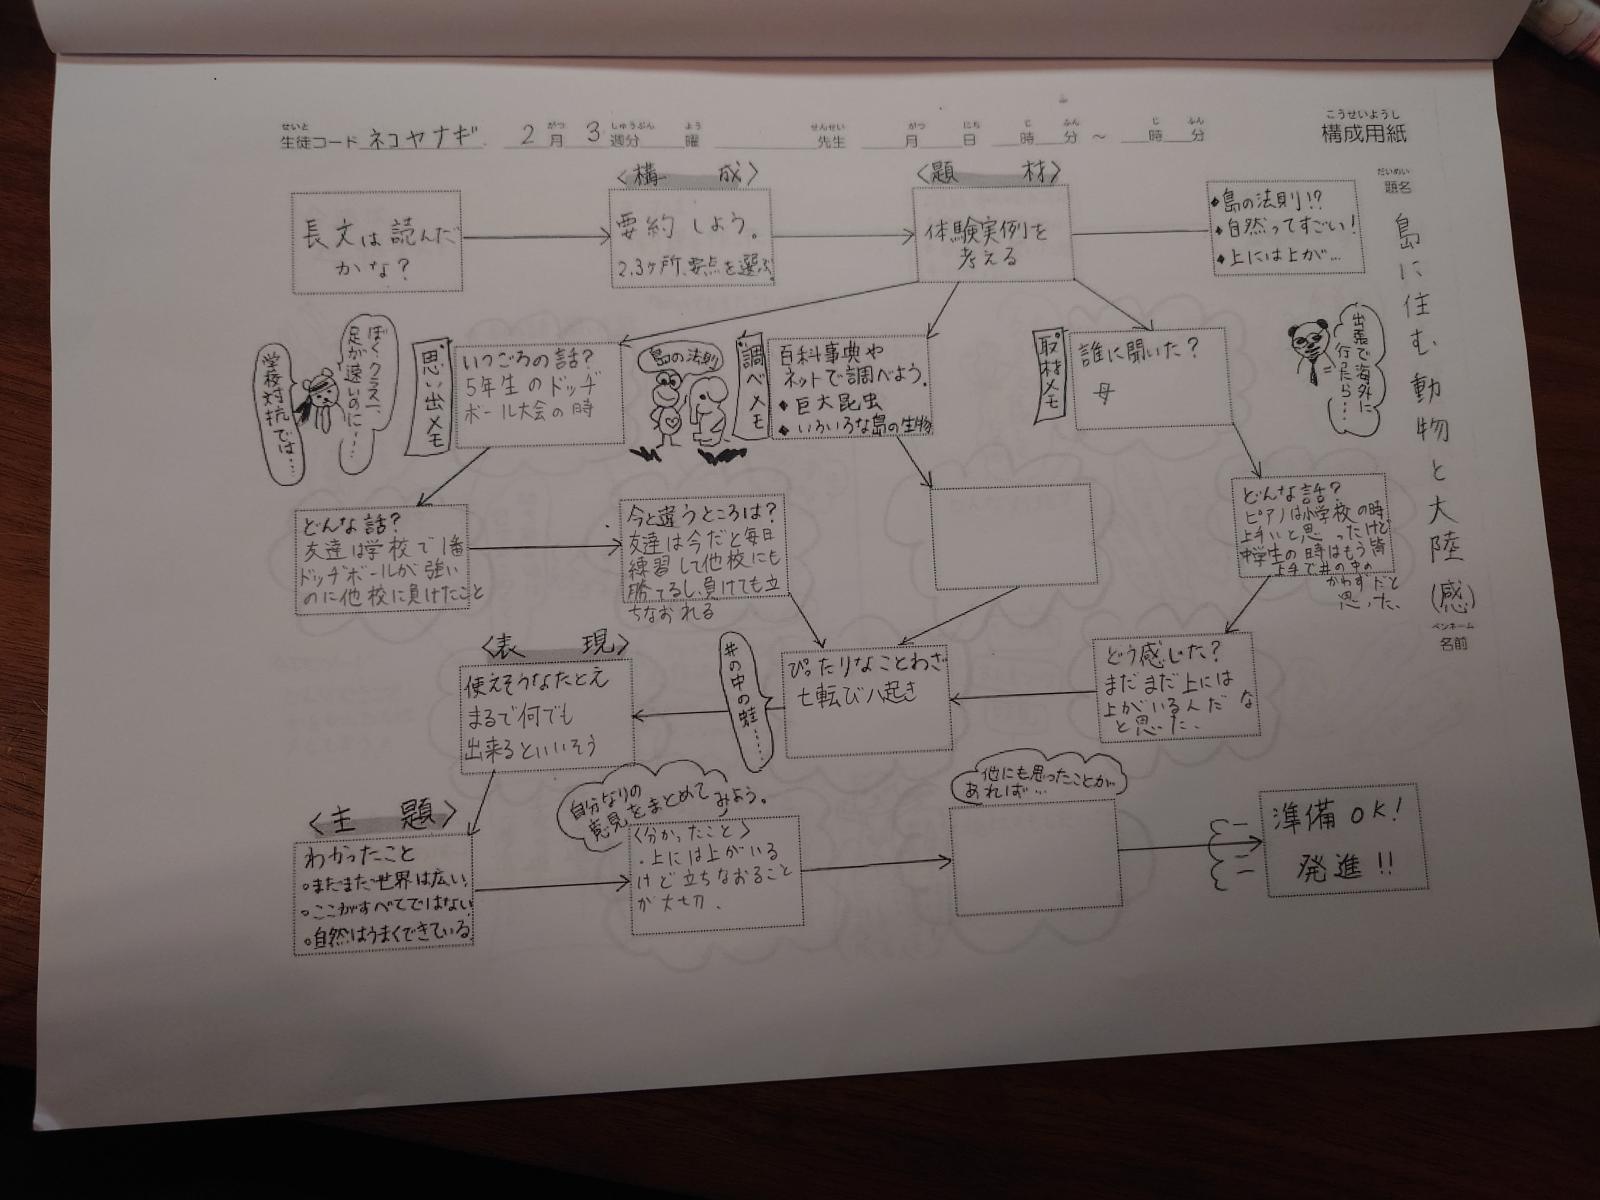 こうせいようし
構成用紙
せいと がつ しゅうぶん よう せんせい がつ にち じ ふん じ ふん
生徒コード ネコヤナギ 2月 3週分 曜 先生 月 日 時 分 ～ 時 分
だいめい
題名
島に住む動物と大陸(感)
ペンネーム
名前
長文は読んだ
かな?
〈構 成〉
要約しよう。
2.3ヶ所、要点を選ぶ。
〈題 材〉
体験実例を
考える
◆島の法則!?
◆自然ってすごい!
◆上には上が…
ぼく、クラス一、
足が速いのに‥‥
学校対抗では…
思い出メモ
いつごろの話?
5年生のドッヂ
ボール大会の時
島の法則
調べメモ
百科事典や
ネットで調べよう。
◆巨大昆虫
◆いろいろな島の生物
取材メモ
誰に聞いた?
母
出張で海外に
行ったら…
どんな話?
友達は学校で1番
ドッヂボールが強い
のに他校に負けたこと
今と違うところは?
友達は今だと毎日
練習して他校にも
勝てるし、負けても立
ちなおれる
どんな話?
ピアノは小学校の時
上手いと思ったけど
中学生の時はもう皆
上手で井の中の
かわずだと
思った、
どう感じた?
まだまだ上には
上がいるんだな
と思いた、
ぴったりなことわざ
七転び八起き
井の中の蛙……
〈表 現〉
使えそうなたとえ
まるで何でも
出来るといいそう
〈主 題〉
わかったこと
○まだまだ世界は広い。
○ここがすべてではない
○自然はうまくできている。
自分なりの
意見をまとめて
みよう。
〈分かったこと〉
・上には上がいる
けど立ちなおること
が大切.
他にも思ったことが
あれば…
準備OK!
発進!!